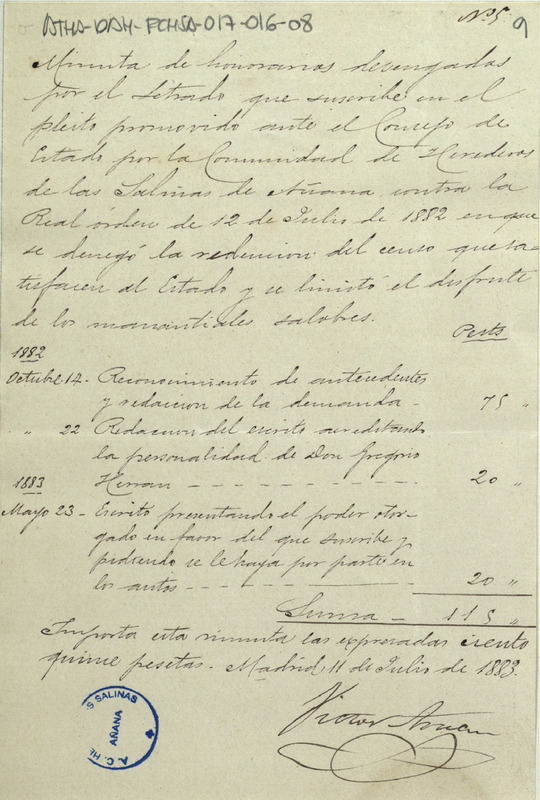 ATHA-DAH-FCHSA-017-016-08
Nº 5
9
Minuta de honorarios devengados
por el Letrado que suscribe en el
pleito promovido ante el Consejo de
Estado por la Comunidad de Herederos
de las Salinas de Añana contra la
Real orden de 12 de Julio de 1882 en que
se denegó la redencion del censo que sa-
tisfacen al Estado y se limitó el disfrute
de los manantiales salobres.
Pests
1882
Octubre 14 - Reconocimiento de antecedentes
y redaccion de la demanda - 75 "
" 22 Redaccion del escrito acreditando
la personalidad de Don Gregorio
1883
Herran - - - - - - - - - 20 "
Mayo 23 - Escrito presentando el poder otor-
gado en favor del que suscribe y
pidiendo se le haya por parte en
los autos - - - - - 20 "
Suma - 115 "
Importa esta minuta las expresadas ciento
quince pesetas. Madrid, 11 de Julio de 1883.
Victor
S SALINAS
AÑANA
A. C. HE